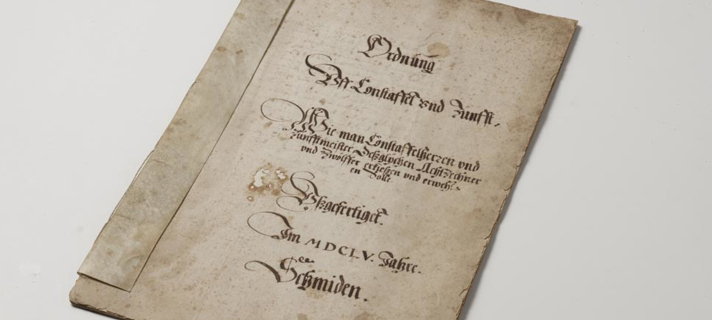 Ordnung
Vff Constaffel vnd Zunfft,
Wie man Constaffelherren und
Zunftmeister Deßglychen Achtzechner
und Zwölffer erkiesen und erwehl-
en Solle
Vßgefertiget.
Im MDCLV. Jahre.
Schmiden.